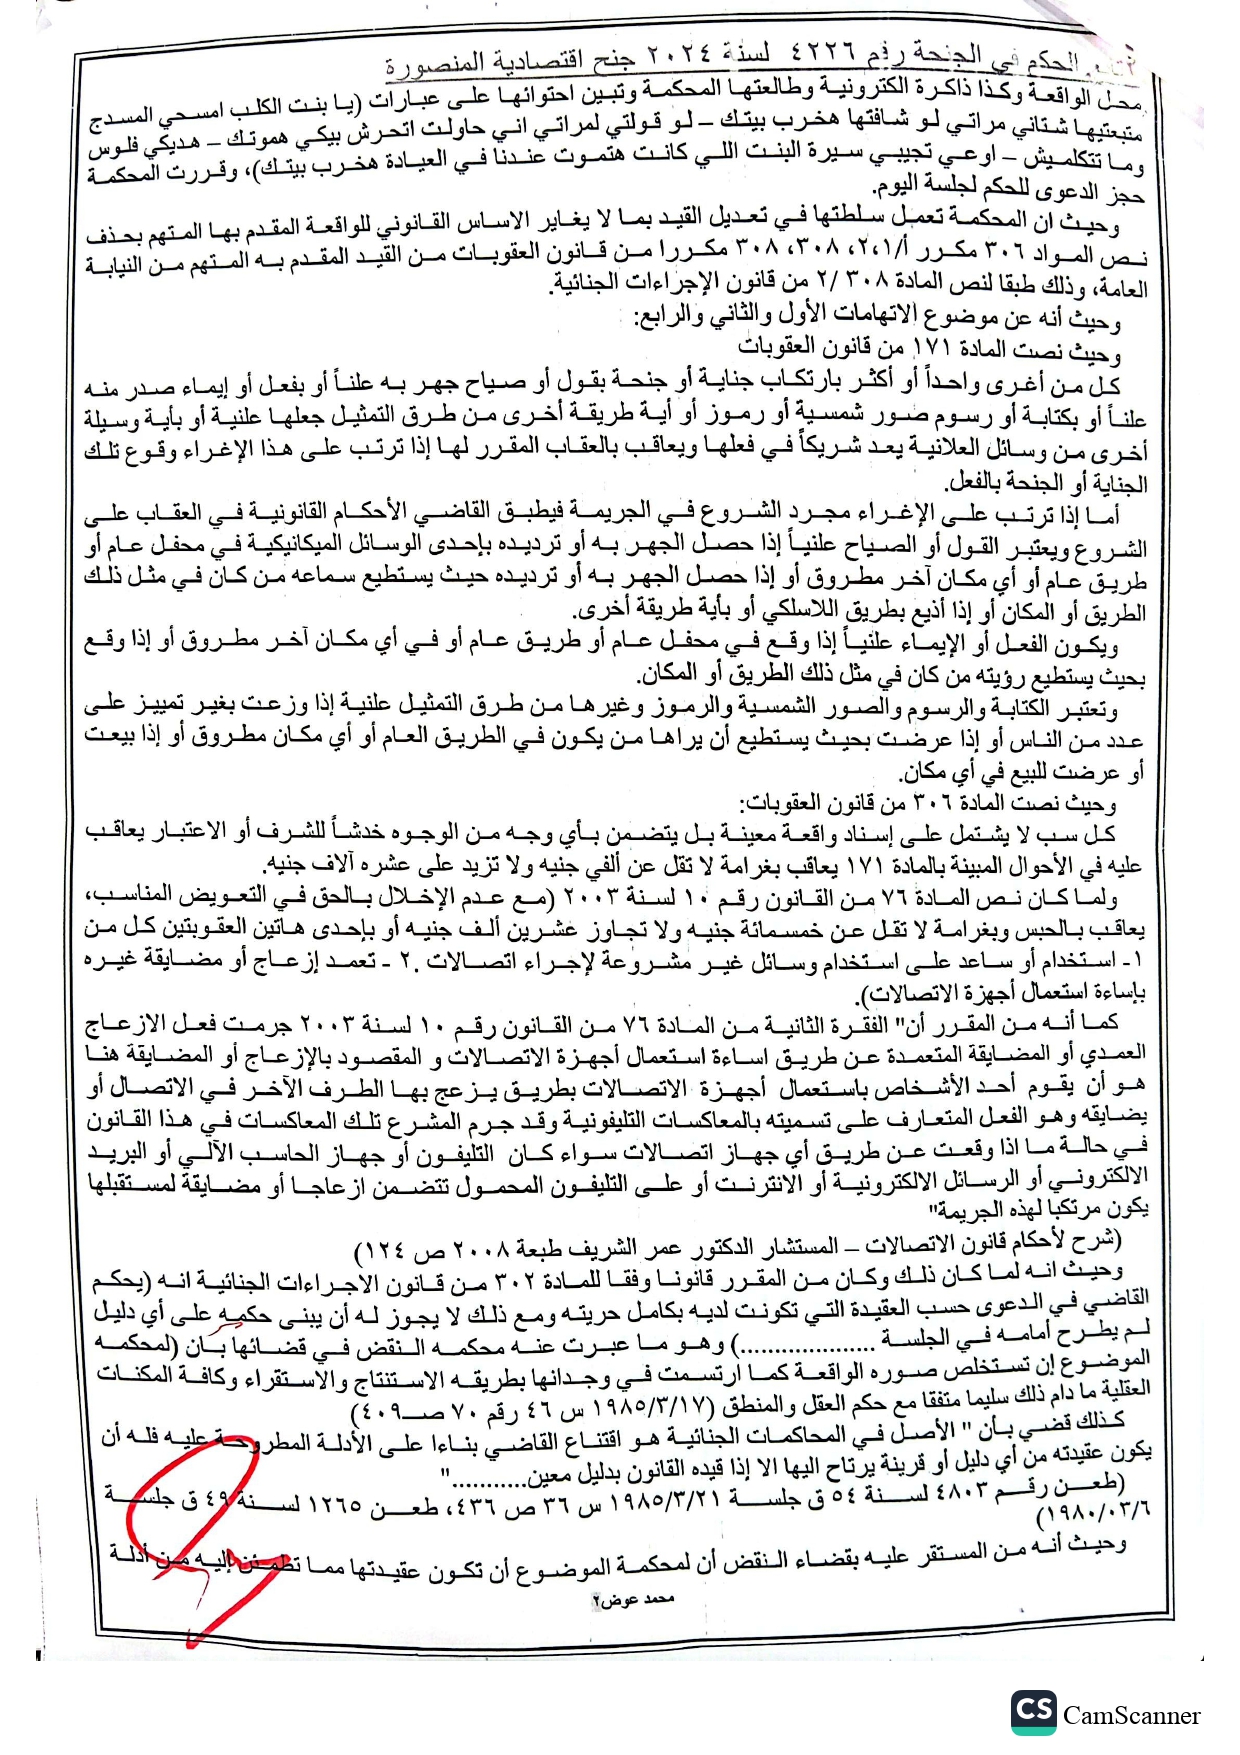 تابع الحكم في الجنحة رقم ٤٢٢٦ لسنة ٢٠٢٤ جنح اقتصادية المنصورة
محل الواقعة وكذا ذاكرة الكترونية وطالعتها المحكمة وتبين احتوائها على عبارات (يا بنت الكلب امسحي المسدج
متبعتيها شتاني مراتي لو شافتها هخرب بيتك – لو قولتي لمراتي اني حاولت اتحرش بيكي هموتك – هديكي فلوس
وما تتكلميش – اوعي تجيبي سيرة البنت اللي كانت هتموت عندنا في العيادة هخرب بيتك)، وقررت المحكمة
حجز الدعوى للحكم لجلسة اليوم.
وحيث ان المحكمة تعمل سلطتها في تعديل القيد بما لا يغاير الاساس القانوني للواقعة المقدم بها المتهم بحذف
نص المواد ٣٠٦ مكرر أ/٢،١، ٣٠٨، ٣٠٨ مكررا من قانون العقوبات من القيد المقدم به المتهم من النيابة
العامة، وذلك طبقا لنص المادة ٣٠٨ /٢ من قانون الإجراءات الجنائية.
وحيث أنه عن موضوع الاتهامات الأول والثاني والرابع:
وحيث نصت المادة ١٧١ من قانون العقوبات
كل من أغرى واحداً أو أكثر بارتكاب جناية أو جنحة بقول أو صياح جهر به علناً أو بفعل أو إيماء صدر منه
علناً أو بكتابة أو رسوم صور شمسية أو رموز أو أية طريقة أخرى من طرق التمثيل جعلها علنية أو بأية وسيلة
أخرى من وسائل العلانية يعد شريكاً في فعلها ويعاقب بالعقاب المقرر لها إذا ترتب على هذا الإغراء وقوع تلك
الجناية أو الجنحة بالفعل.
أما إذا ترتب على الإغراء مجرد الشروع في الجريمة فيطبق القاضي الأحكام القانونية في العقاب على
الشروع ويعتبر القول أو الصياح علنياً إذا حصل الجهر به أو ترديده بإحدى الوسائل الميكانيكية في محفل عام أو
طريق عام أو أي مكان آخر مطروق أو إذا حصل الجهر به أو ترديده حيث يستطيع سماعه من كان في مثل ذلك
الطريق أو المكان أو إذا أذيع بطريق اللاسلكي أو بأية طريقة أخرى.
ويكون الفعل أو الإيماء علنياً إذا وقع في محفل عام أو طريق عام أو في أي مكان آخر مطروق أو إذا وقع
بحيث يستطيع رؤيته من كان في مثل ذلك الطريق أو المكان.
وتعتبر الكتابة والرسوم والصور الشمسية والرموز وغيرها من طرق التمثيل علنية إذا وزعت بغير تمييز على
عدد من الناس أو إذا عرضت بحيث يستطيع أن يراها من يكون في الطريق العام أو أي مكان مطروق أو إذا بيعت
أو عرضت للبيع في أي مكان.
وحيث نصت المادة ٣٠٦ من قانون العقوبات:
كل سب لا يشتمل على إسناد واقعة معينة بل يتضمن بأي وجه من الوجوه خدشاً للشرف أو الاعتبار يعاقب
عليه في الأحوال المبينة بالمادة ١٧١ يعاقب بغرامة لا تقل عن ألفي جنيه ولا تزيد على عشره آلاف جنيه.
ولما كان نص المادة ٧٦ من القانون رقم ١٠ لسنة ٢٠٠٣ (مع عدم الإخلال بالحق في التعويض المناسب،
يعاقب بالحبس وبغرامة لا تقل عن خمسمائة جنيه ولا تجاوز عشرين ألف جنيه أو بإحدى هاتين العقوبتين كل من
١- استخدام أو ساعد على استخدام وسائل غير مشروعة لإجراء اتصالات .٢ - تعمد إزعاج أو مضايقة غيره
بإساءة استعمال أجهزة الاتصالات).
كما أنه من المقرر أن" الفقرة الثانية من المادة ٧٦ من القانون رقم ١٠ لسنة ٢٠٠٣ جرمت فعل الازعاج
العمدي أو المضايقة المتعمدة عن طريق اساءة استعمال أجهزة الاتصالات و المقصود بالإزعاج أو المضايقة هنا
هو أن يقوم أحد الأشخاص باستعمال أجهزة الاتصالات بطريق يزعج بها الطرف الآخر في الاتصال أو
يضايقه وهو الفعل المتعارف على تسميته بالمعاكسات التليفونية وقد جرم المشرع تلك المعاكسات في هذا القانون
في حالة ما اذا وقعت عن طريق أي جهاز اتصالات سواء كان التليفون أو جهاز الحاسب الآلي أو البريد
الالكتروني أو الرسائل الالكترونية أو الانترنت أو على التليفون المحمول تتضمن ازعاجا أو مضايقة لمستقبلها
يكون مرتكبا لهذه الجريمة"
(شرح لأحكام قانون الاتصالات – المستشار الدكتور عمر الشريف طبعة ٢٠٠٨ ص ١٢٤)
وحيث انه لما كان ذلك وكان من المقرر قانونا وفقا للمادة ٣٠٢ من قانون الاجراءات الجنائية انه (يحكم
القاضي في الدعوى حسب العقيدة التي تكونت لديه بكامل حريته ومع ذلك لا يجوز له أن يبنى حكمه على أي دليل
لم يطرح أمامه في الجلسة ....................) وهو ما عبرت عنه محكمه النقض في قضائها بان (لمحكمه
الموضوع إن تستخلص صوره الواقعة كما ارتسمت في وجدانها بطريقه الاستنتاج والاستقراء وكافة المكنات
العقلية ما دام ذلك سليما متفقا مع حكم العقل والمنطق (١٩٨٥/٣/١٧ س ٤٦ رقم ٧٠ صـ٤٠٩)
كذلك قضي بأن " الأصل في المحاكمات الجنائية هو اقتناع القاضي بناءا على الأدلة المطروحة عليه فله أن
يكون عقيدته من أي دليل أو قرينة يرتاح اليها الا إذا قيده القانون بدليل معين..........."
(طعن رقم ٤٨٠٣ لسنة ٥٤ ق جلسة ١٩٨٥/٣/٢١ س ٣٦ ص ٤٣٦، طعن ١٢٦٥ لسنة ٤٩ ق جلسة
١٩٨٠/٠٣/٦)
وحيث أنه من المستقر عليه بقضاء النقض أن لمحكمة الموضوع أن تكون عقيدتها مما تطمئن إليه من أدلة
محمد عوض٢
CS CamScanner